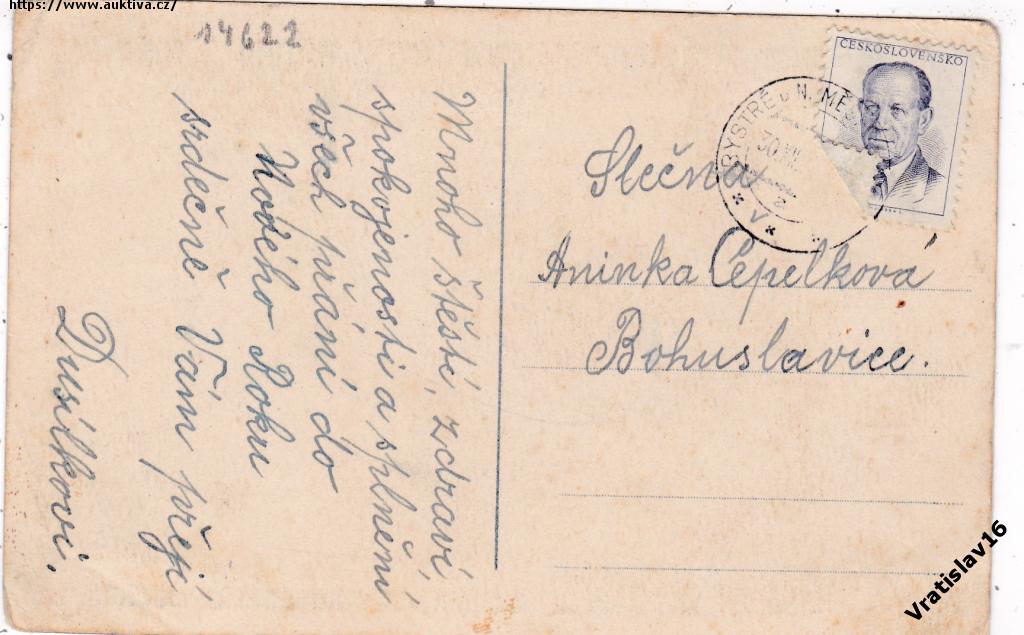 https://www.auktiva.cz/
14622
Mnoho štěstí, zdraví,
spokojenosti a splnění
všech přání do
Nového Roku
srdečně Vám přejí
Dusílkovi.
ČESKOSLOVENSKO
BYSTRÉ u N. MĚS
30.XII
Slečna
Aninka Čépelková
Bohuslavice.
Vratislav16